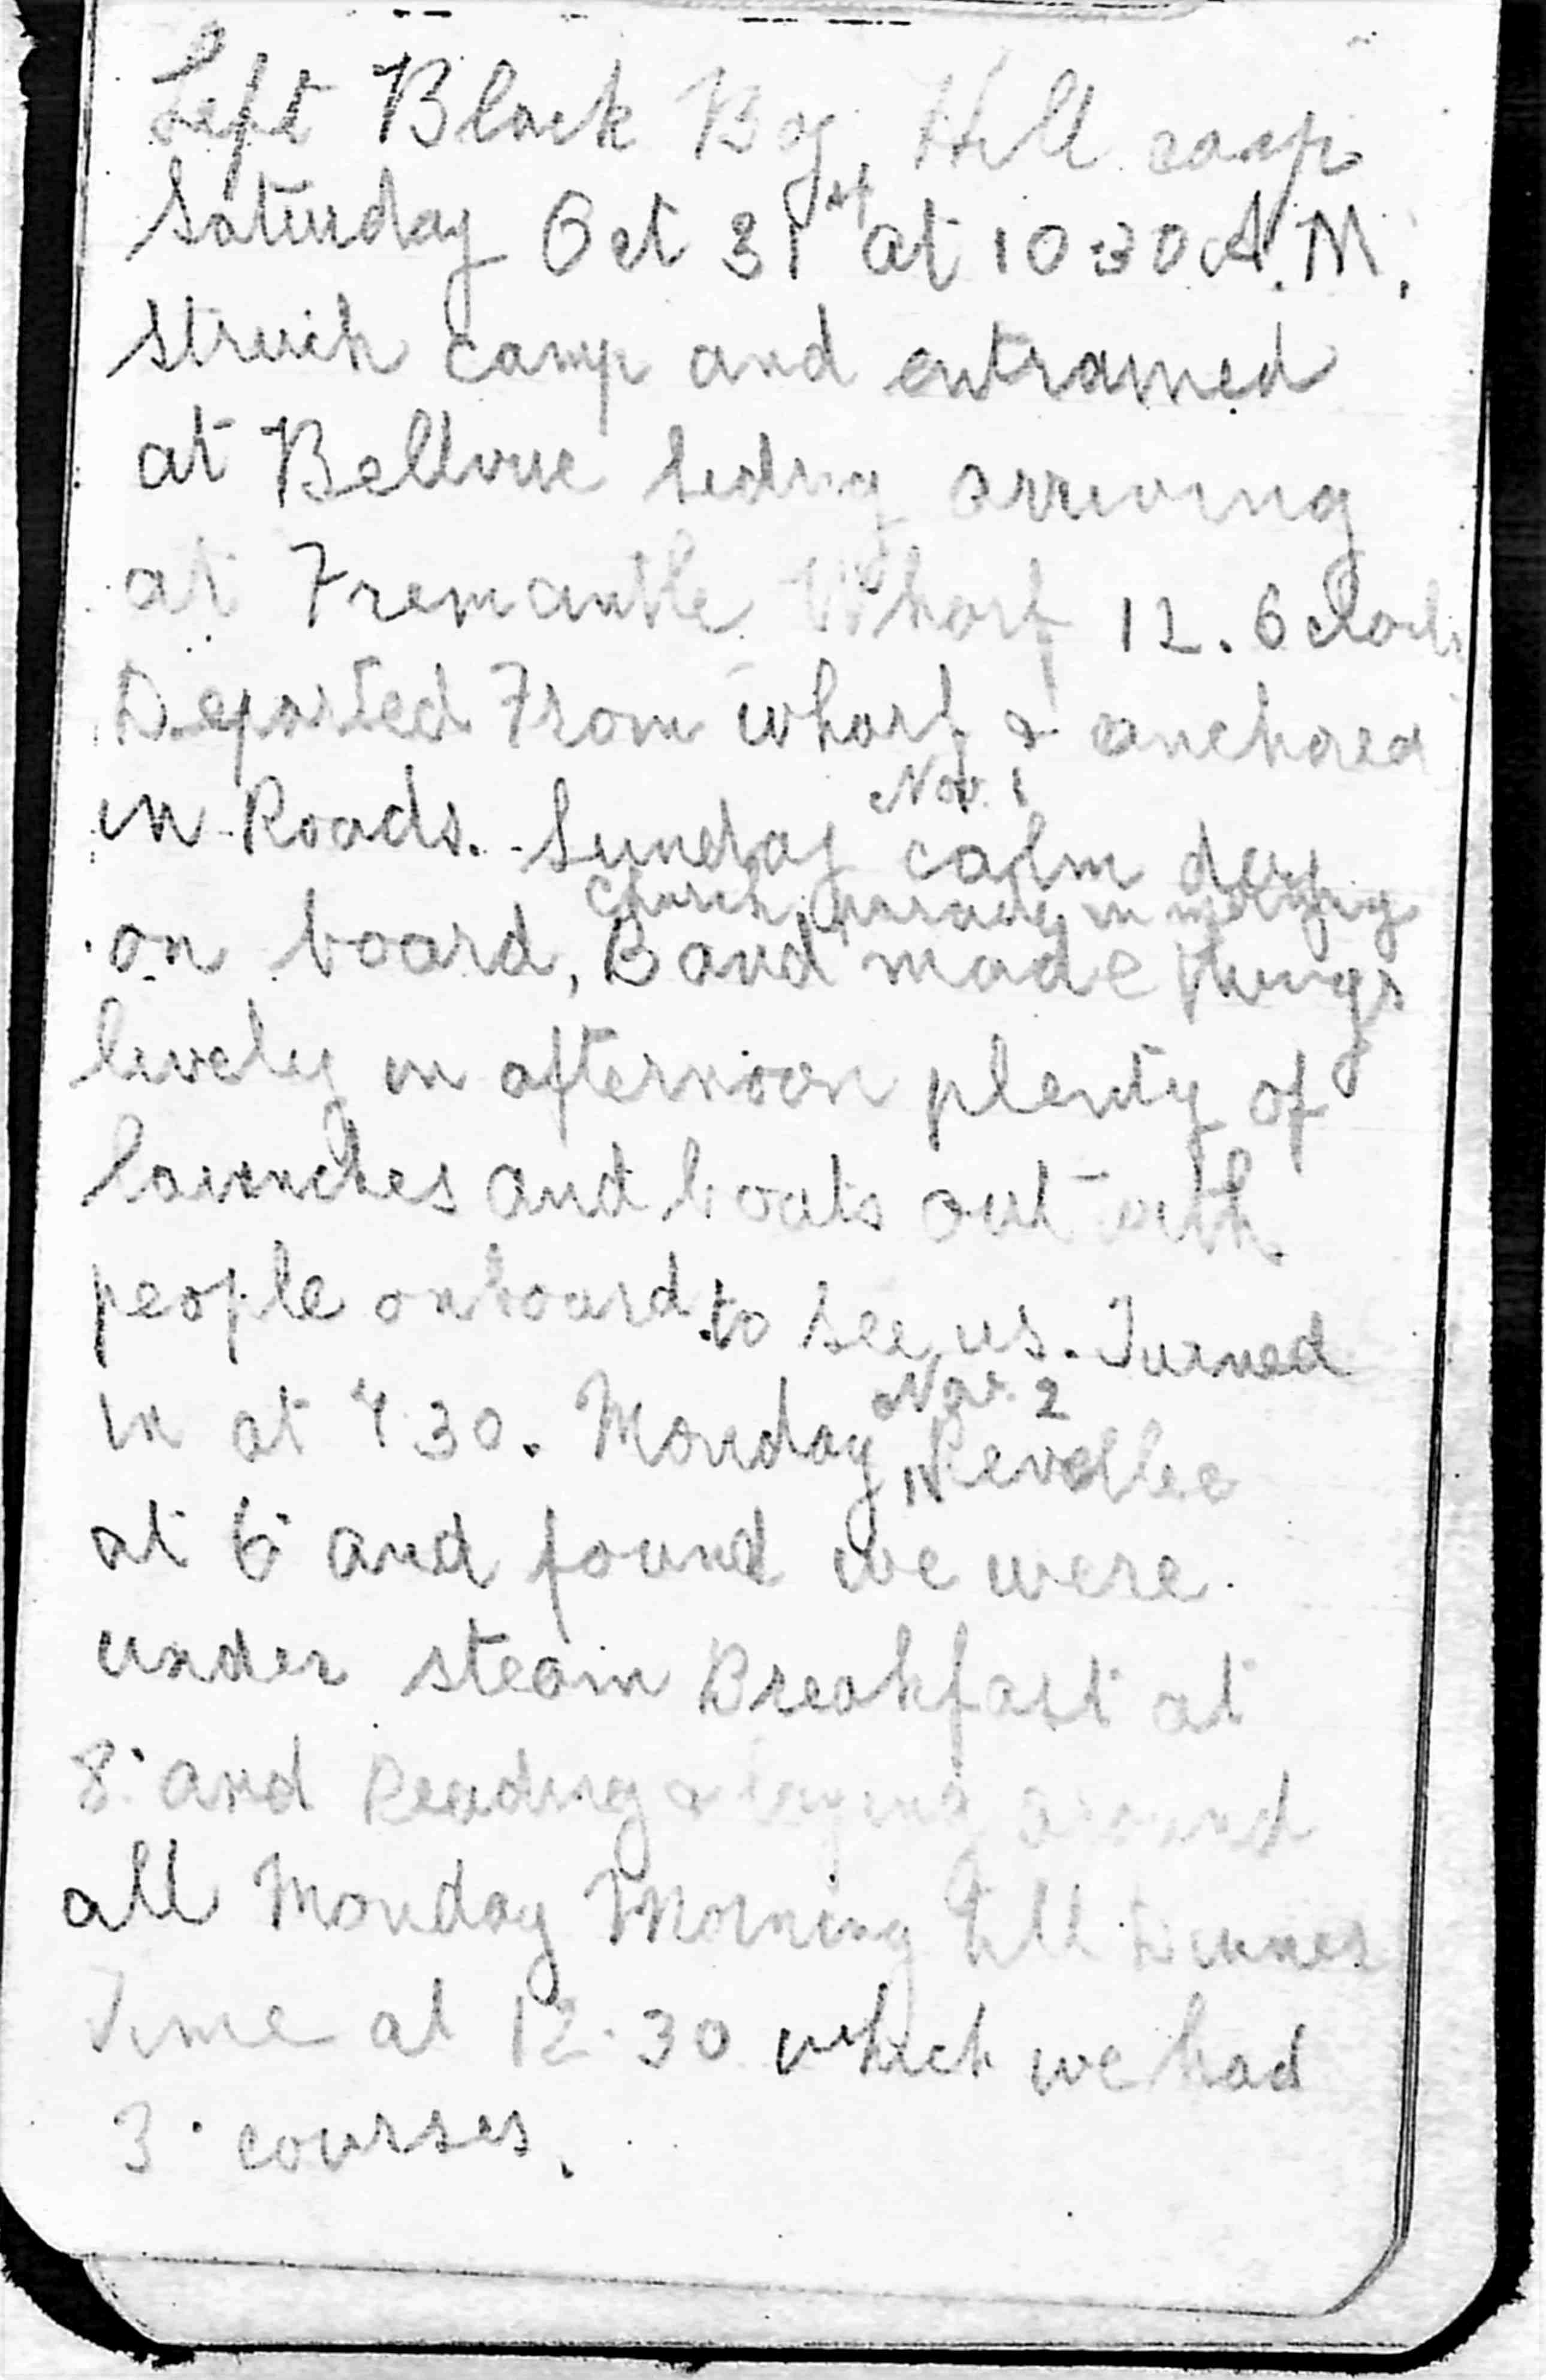 Left Black Boy Hill camp
Saturday Oct 31st at 10.30 A.M.
struck camp and entrained
at Bellvue siding arriving
at Fremantle Wharf 12. 6clock
Departed From wharf & anchored
Nov. 1
in Roads. Sunday calm day
Church parade in morning
on board, Band made things
lively in afternoon plenty of
launches and boats out with
people onboard to see us. Turned
Nov. 2
in at 930. Monday, Revellee
at 6 and found we were
under steam Breakfast at
8. and Reading & laying around
all Monday Morning till Dinner
Time at 12.30 which we had
3 courses.